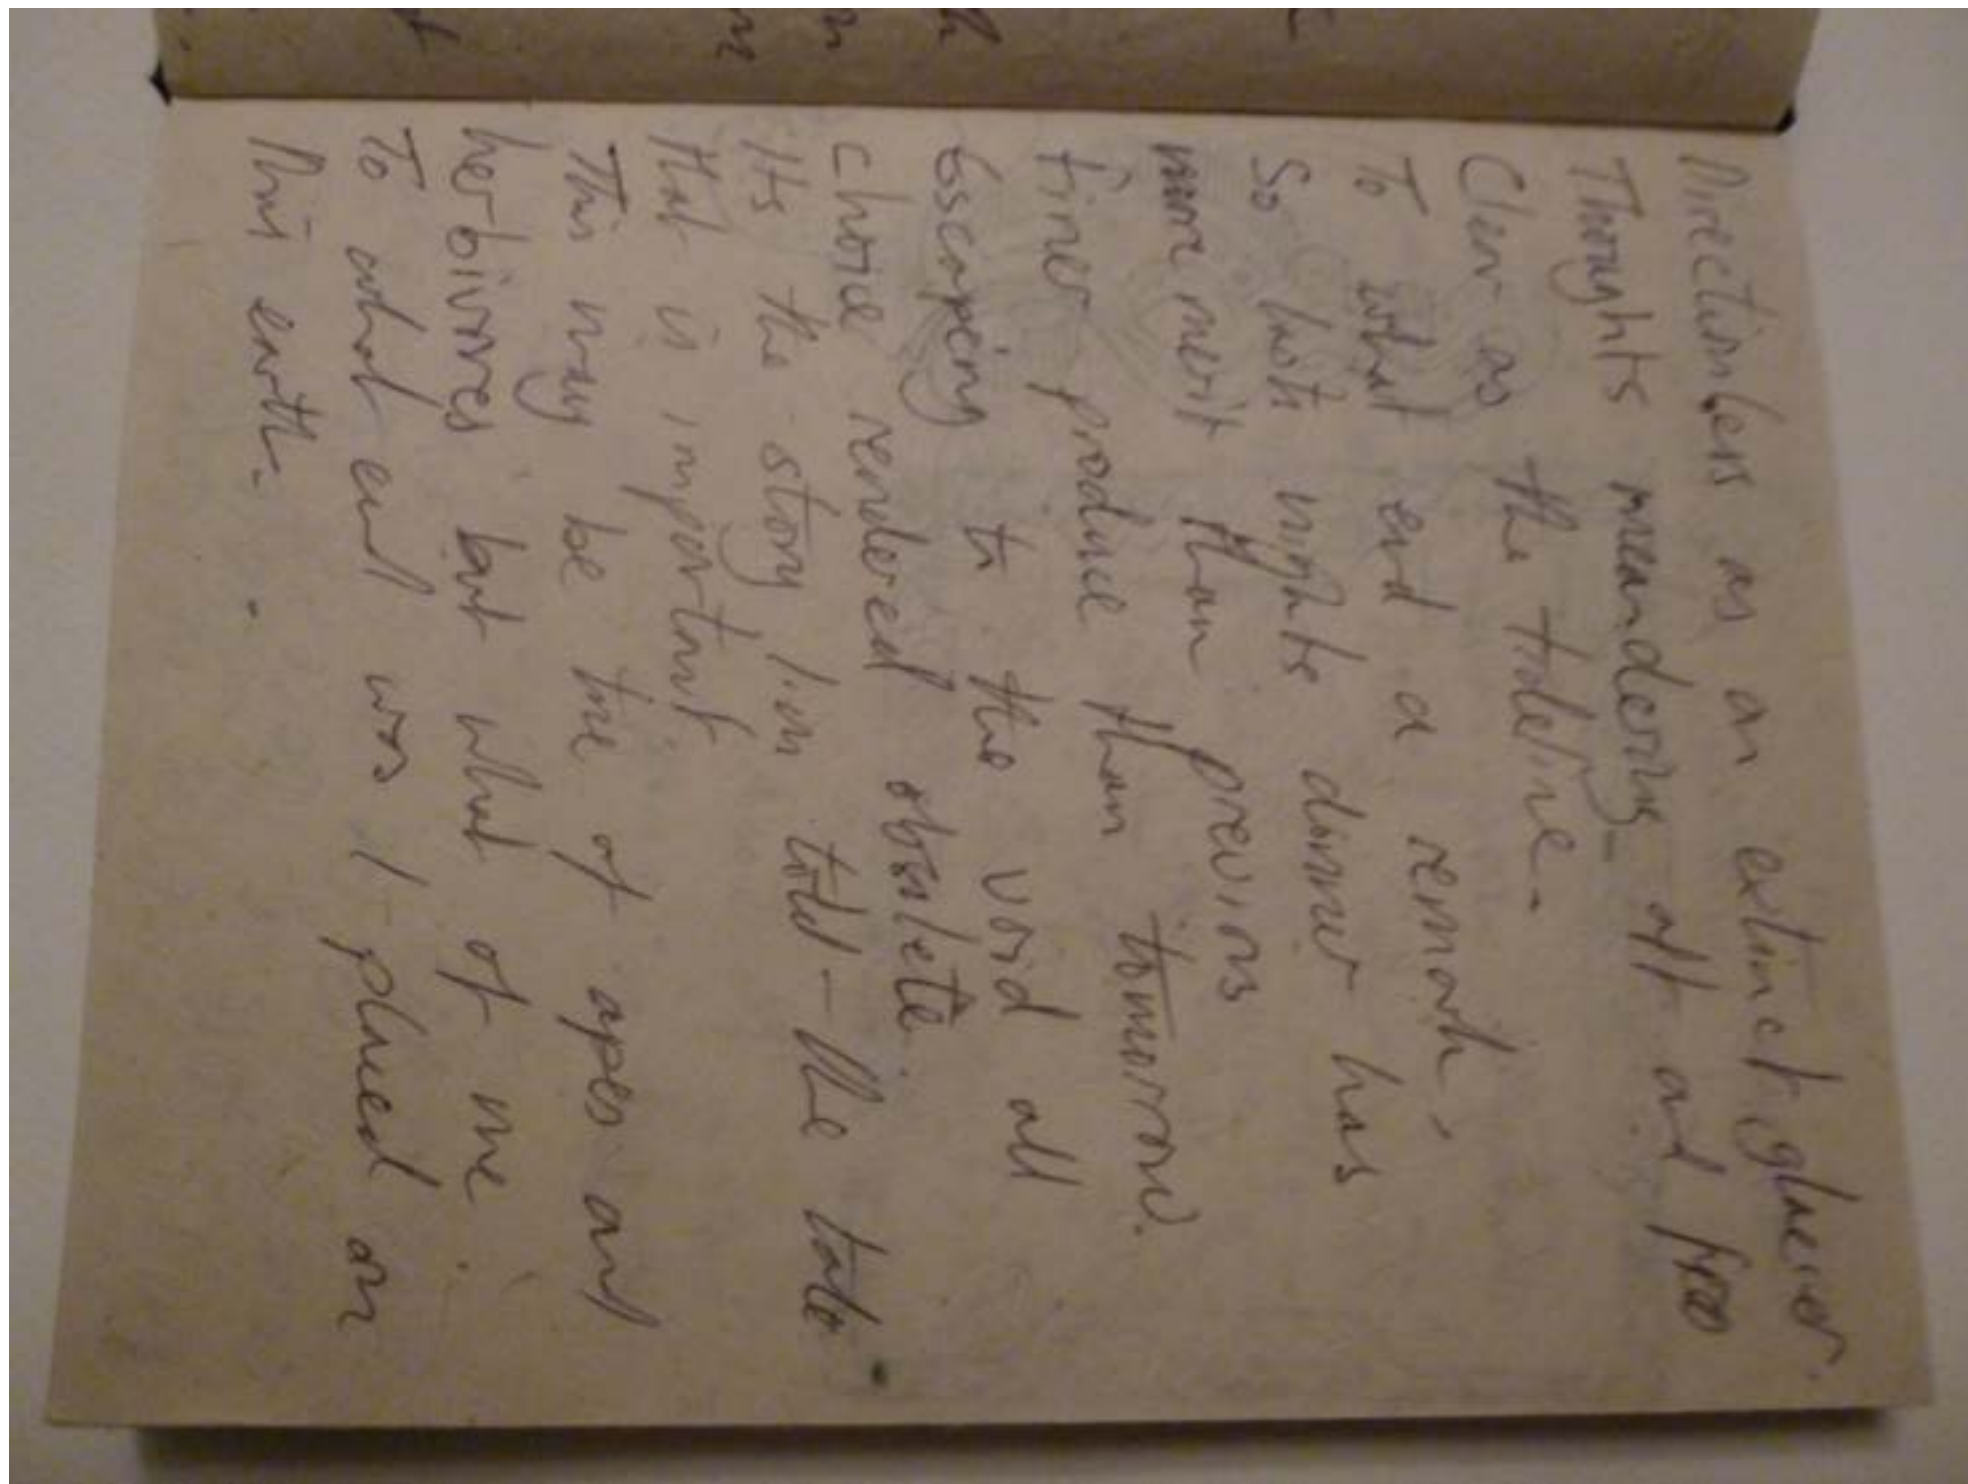 Directionless as an extinct glacier.
Thoughts meandering off and free
Clear as the tideline.
To what end a remark,
So last nights dinner has
more merit than previous
finer produce than tomorrow.
Escaping to the void all
choice rendered obsolete.
Its the story I'm told - the tale
that is important.
This may be true of apes and
herbivores but what of me.
To what end was I placed on
this earth.